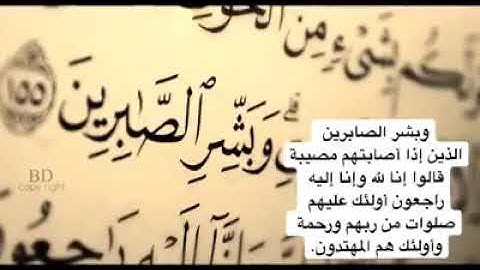 بشىء من الخوف
وبشر الصابرين
١٥٥
وإنا إليه راجعون
BD
copy right
وبشر الصابرين
الذين إذا أصابتهم مصيبة
قالوا إنا لله وإنا إليه
راجعون أولئك عليهم
صلوات من ربهم ورحمة
وأولئك هم المهتدون.